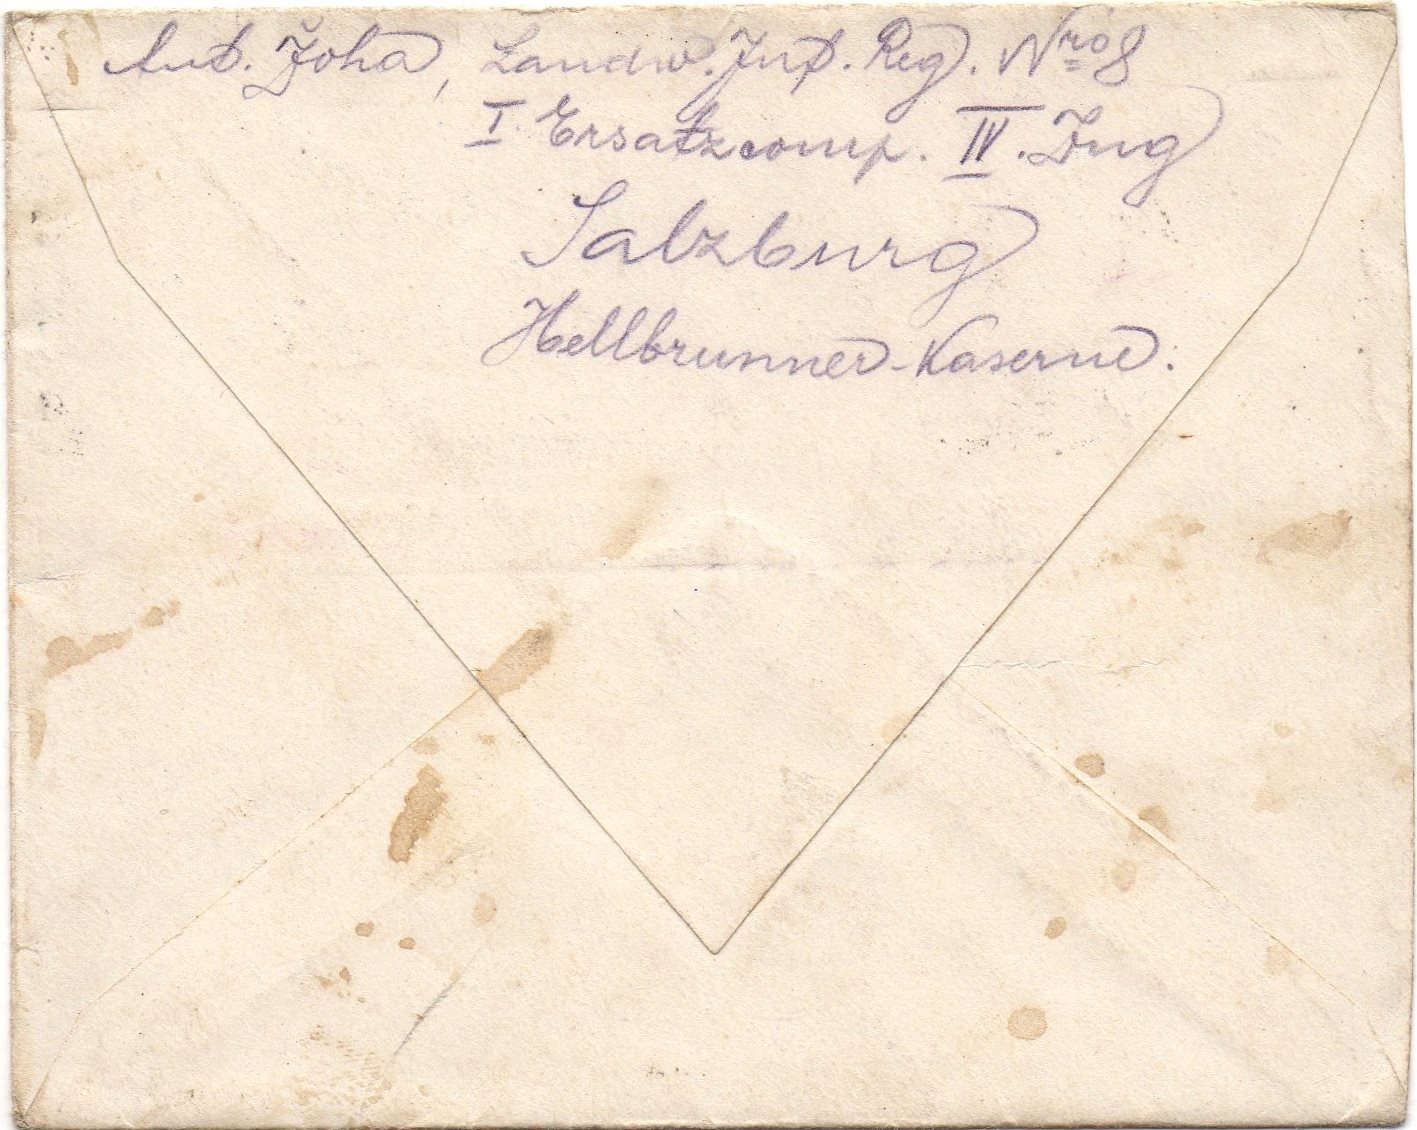 Ant. Joha, Landw. Inf. Reg. Nro 8
I. Ersatzcomp. IV. Zug
Salzburg
Hellbrunner-Kaserne.